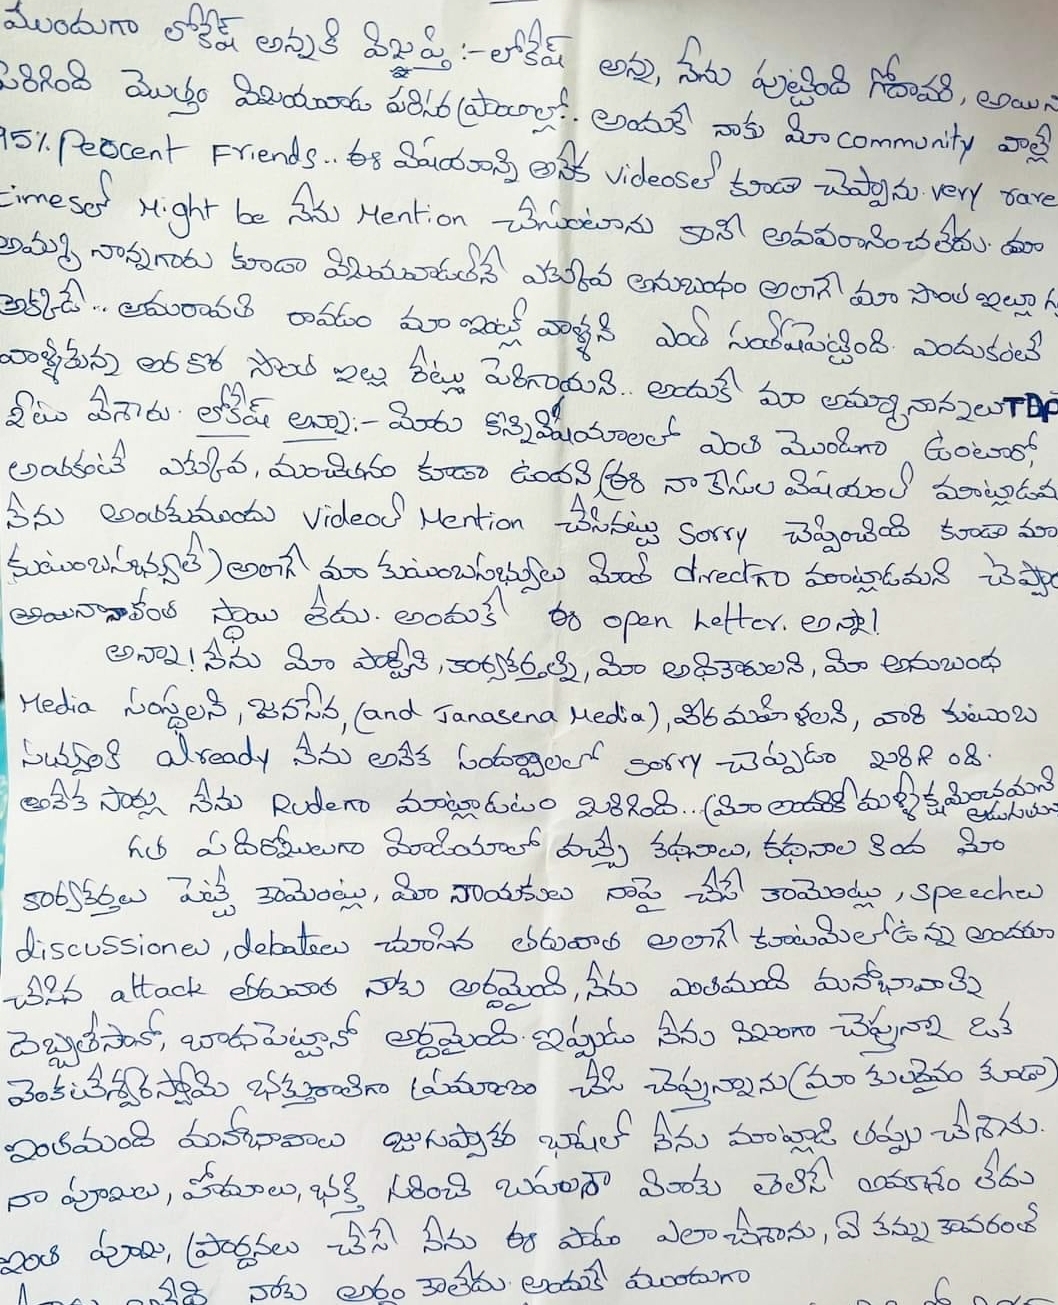 ముందుగా లోకేష్ అన్నకి విజ్ఞప్తి :- లోకేష్ అన్న, నేను పుట్టింది గోదావరి, అయిన
పెరిగింది మొత్తం విజయవాడ పరిసర ప్రాంతాల్లో.. అందుకే నాకు మీ community వాళ్లే
95% Percent Friends.. ఈ విషయాన్ని అనేక videosలో కూడా చెప్పాను. very rare
timesలో Might be నేను Mention చేసుంటాను కానీ అవమానించలేదు. మా
అమ్మ నాన్నగారు కూడా విజయవాడతోనే ఎక్కువ అనుబంధం అలాగే మా సొంత ఇల్లు
అక్కడే... అమరావతి రావడం మా ఇంట్లో వాళ్ళని ఎంతో సంతోషపెట్టింది. ఎందుకంటే
వాళ్ళకున్న అరకొర సొంత ఇల్లు రేట్లు పెరిగాయని.. అందుకే మా అమ్మానాన్నలు TDP
కి ఓటు వేశారు. లోకేష్ అన్నా :- మీరు కొన్ని విషయాలలో ఎంత మొండిగా ఉంటారో,
అంతకంటే ఎక్కువ, మంచితనం కూడా ఉందని (ఈ నా కేసుల విషయంలో మాట్లాడమ
నేను అంతకుముందు videoలో Mention చేసినట్టు sorry చెప్పించింది కూడా మా
కుటుంబసభ్యులే) అలాగే మా కుటుంబసభ్యులు మీతో directగా మాట్లాడమని చెప్పా
అయినా నాకంత స్థాయి లేదు. అందుకే ఈ open Letter. అన్నా!
అన్నా! నేను మీ పార్టీని, కార్యకర్తల్ని, మీ అధినేతలని, మీ అనుబంధ
Media సంస్థలని, జనసేన, (and Janasena Media), వీర మహిళలని, వారి కుటుంబ
సభ్యులకి already నేను అనేక సందర్భాలలో sorry చెప్పుడం జరిగింది.
అనేక సార్లు నేను Rudeగా మాట్లాడుటం జరిగింది... (మీ అందరికీ మళ్ళీ క్షమించమని అడుగుతు
గత పది రోజులుగా మీడియాలో వచ్చే కథనాలు, కథనాల కింద మీ
కార్యకర్తలు పెట్టే కామెంట్లు, మీ నాయకులు నాపై చేసే కామెంట్లు, speechలు
discussionలు, debateలు చూసిన తరువాత అలాగే కూటమిలో ఉన్న అందరూ
చేసిన attack తరువాత నాకు అర్ధమైంది, నేను ఎంతమంది మనోభావాల్ని
దెబ్బతీసానో, బాధపెట్టానో అర్ధమైంది. ఇప్పుడు నేను నిజంగా చెప్తున్నా ఒక
వెంకటేశ్వరస్వామి భక్తురాలిగా ప్రమాణం చేసి చెప్తున్నాను (మా కులదైవం కూడా)
ఇంతమంది మనోభావాలు జుగుప్సాకర భాషలో నేను మాట్లాడి తప్పు చేశాను.
నా పూజలు, హోమాలు, భక్తి గురించి బహుశా మీకు తెలిసే అవకాశం లేదు
ఇంత పూజ, ప్రార్ధనలు చేసే నేను ఈ పాపం ఎలా చేశాను, ఏ కన్ను కావరంతో
నాకు అర్ధం కాలేదు. అందుకే ముందుగా